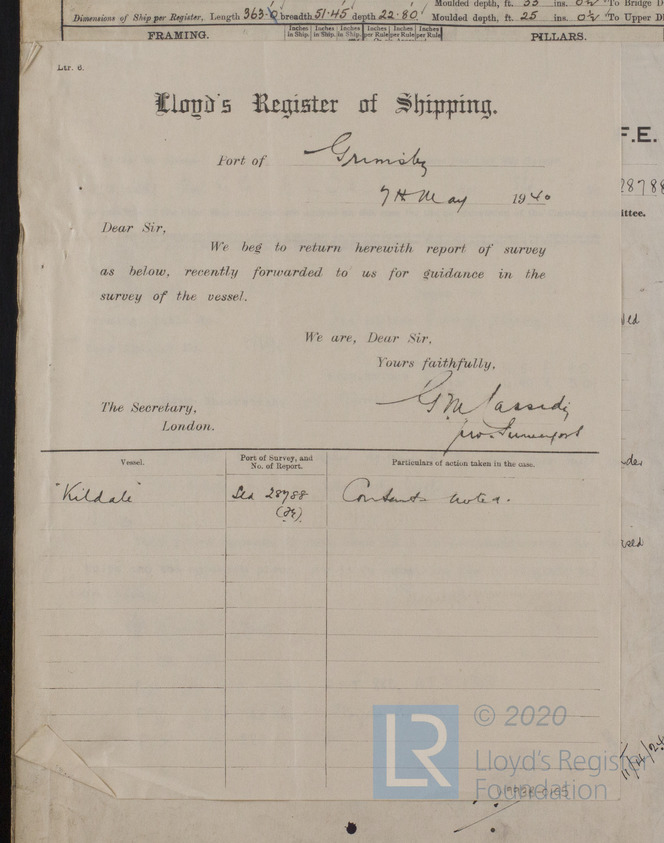 Moulded depth, ft. 33 ins. 0½ To Bridge D
Dimensions of Ship per Register, Length 363.0 breadth 51.45 depth 22.80 Moulded depth, ft. 25 ins. 0½ To Upper D
FRAMING.
Inches in Ship. Inches in Ship. Inches in Ship. Inches per Rule Inches per Rule Inches per Rule
PILLARS.
Ltr. 6.
Lloyd's Register of Shipping.
F.E.
Port of Grimsby
28788
7th May 1940
ittee.
Dear Sir,
We beg to return herewith report of survey
as below, recently forwarded to us for guidance in the
survey of the vessel.
We are, Dear Sir,
Yours faithfully,
G M Cassidy
The Secretary,
London.
Vessel.
Port of Survey, and
No. of Report.
Particulars of action taken in the case.
"Kildale"
28788
Contents noted.
© 2020
LR
Lloyd's Regist
Foundation